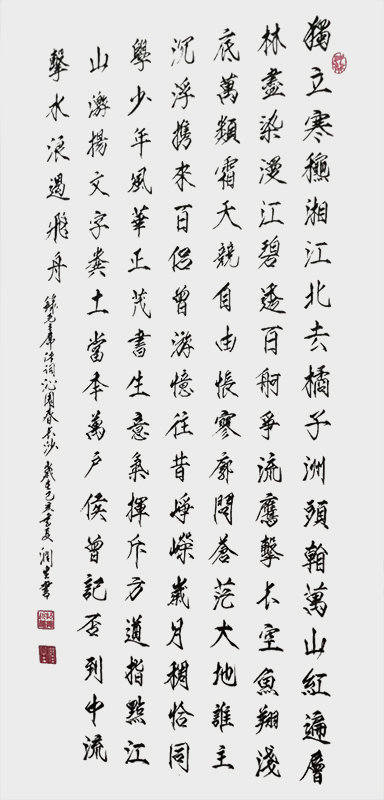 獨立寒穐湘江北去橘子洲頭看萬山紅遍層
林盡染漫江碧透百舸爭流鷹擊長空魚翔淺
底萬類霜天競自由悵寥廓問蒼茫大地誰主
沉浮携來百侣曾游憶往昔崢嶸歲月稠恰同
學少年風華正茂書生意氣揮斥方遒指點江
山激揚文字糞土當年萬戶侯曾記否到中流
擊水浪遏飛舟
錄毛主席詩詞沁園春長沙 歲在己亥夏潤生書